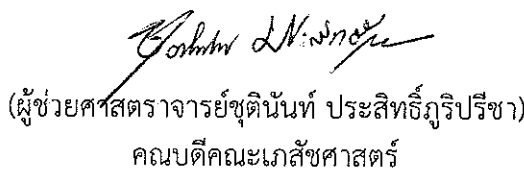 (ผู้ช่วยศาสตราจารย์ชุตินันท์ ประสิทธิ์ภูริปรีชา)
คณบดีคณะเภสัชศาสตร์